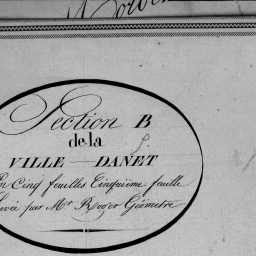 Section B
de la
VILLE DANET
En Cinq feuilles Cinquieme feuille
Levée par Mr Roger Géometre